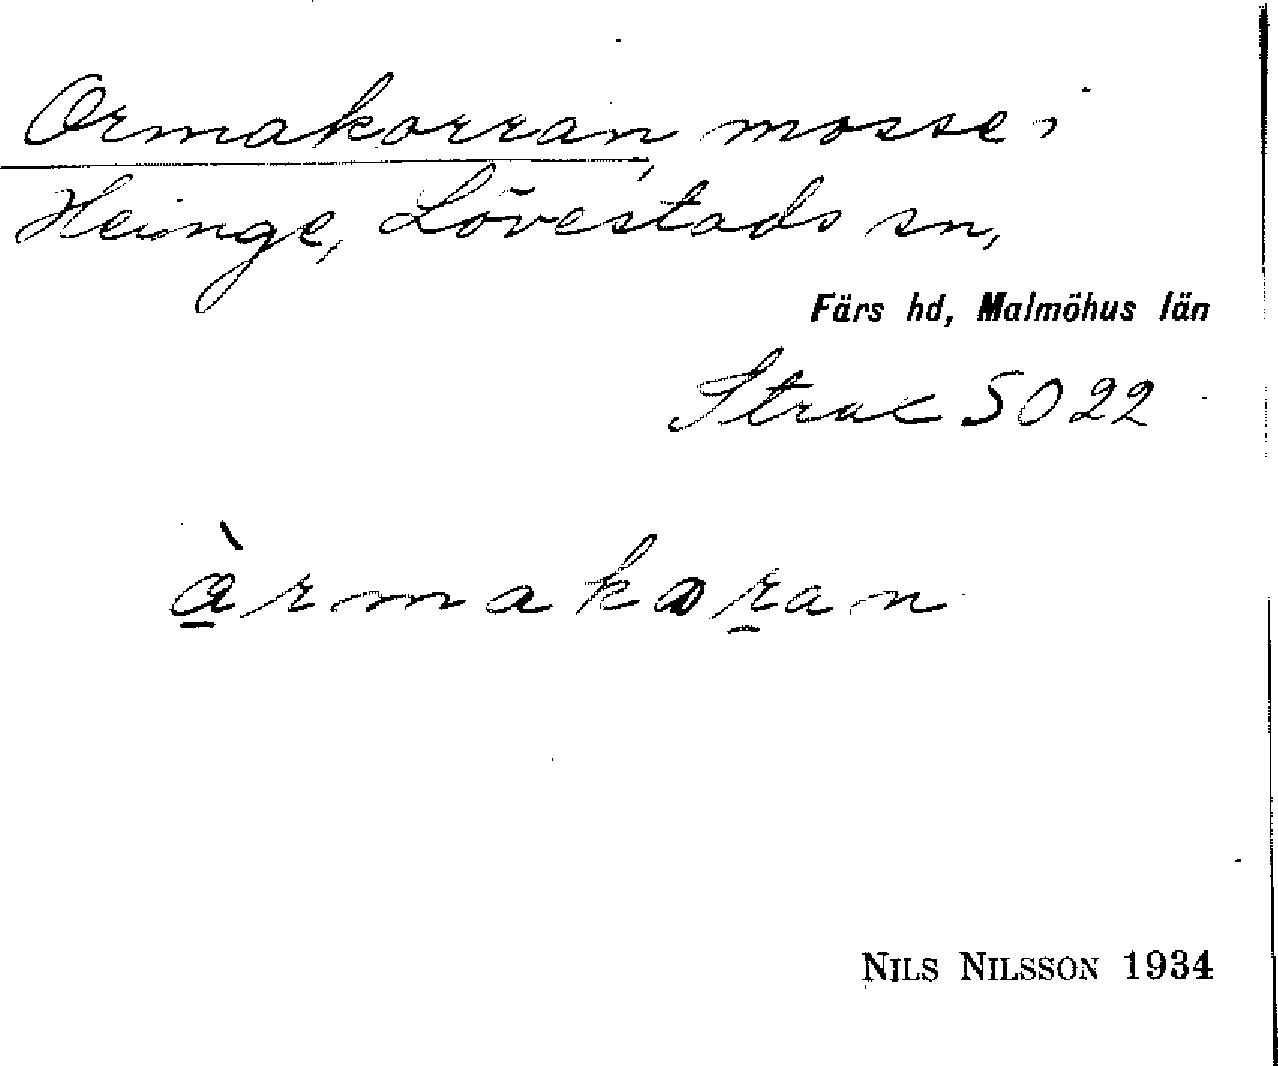 Ormakorran, mosse i
Heinge, Lövestads sn,
Färs hd, Malmöhus län
Strax SO 22
àrmakaran
NILS NILSSON 1934